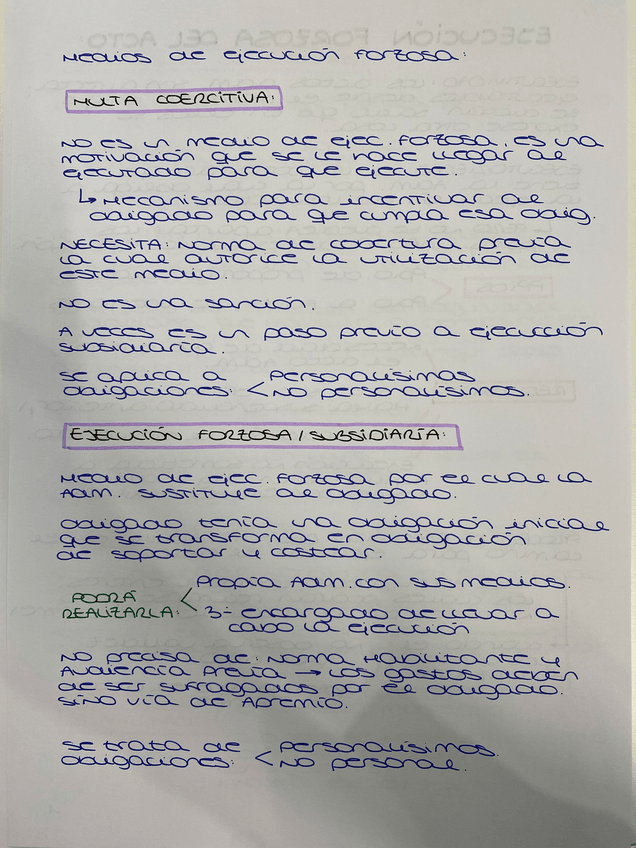 MEDIOS DE EJECUCIÓN FORZOSA:
MULTA COERCITIVA:
NO ES UN MEDIO DE EJEC. FORZOSA, ES UNA
MOTIVACIÓN QUE SE LE HACE LLEGAR AL
EJECUTADO PARA QUE EJECUTE.
↳ MECANISMO PARA INCENTIVAR AL
OBLIGADO PARA QUE CUMPLA ESA OBLIG.
NECESITA: NORMA DE COBERTURA PREVIA
LA CUAL AUTORICE LA UTILIZACIÓN DE
ESTE MEDIO.
NO ES UNA SANCIÓN.
A VECES ES UN PASO PREVIO A EJECUCCIÓN
SUBSIDIARIA.
SE APLICA A < PERSONALÍSIMAS
OBLIGACIONES: NO PERSONALÍSIMOS.
EJECUCIÓN FORZOSA / SUBSIDIARIA:
MEDIO DE EJEC. FORZOSA POR EL CUAL LA
ADM. SUSTITUYE AL OBLIGADO.
OBLIGADO TENÍA UNA OBLIGACIÓN INICIAL
QUE SE TRANSFORMA EN OBLIGACIÓN
DE SOPORTAR Y COSTEAR.
PODRÁ < PROPIA ADM. CON SUS MEDIOS.
REALIZARLA: 3º ENCARGADO DE LLEVAR A
CABO LA EJECUCIÓN
NO PRECISA DE: NORMA HABILITANTE Y
AUDIENCIA PREVIA → LOS GASTOS DEBEN
DE SER SUFRAGADOS POR EL OBLIGADO.
SINO VÍA DE APREMIO.
SE TRATA DE < PERSONALÍSIMOS.
OBLIGACIONES: NO PERSONAL.